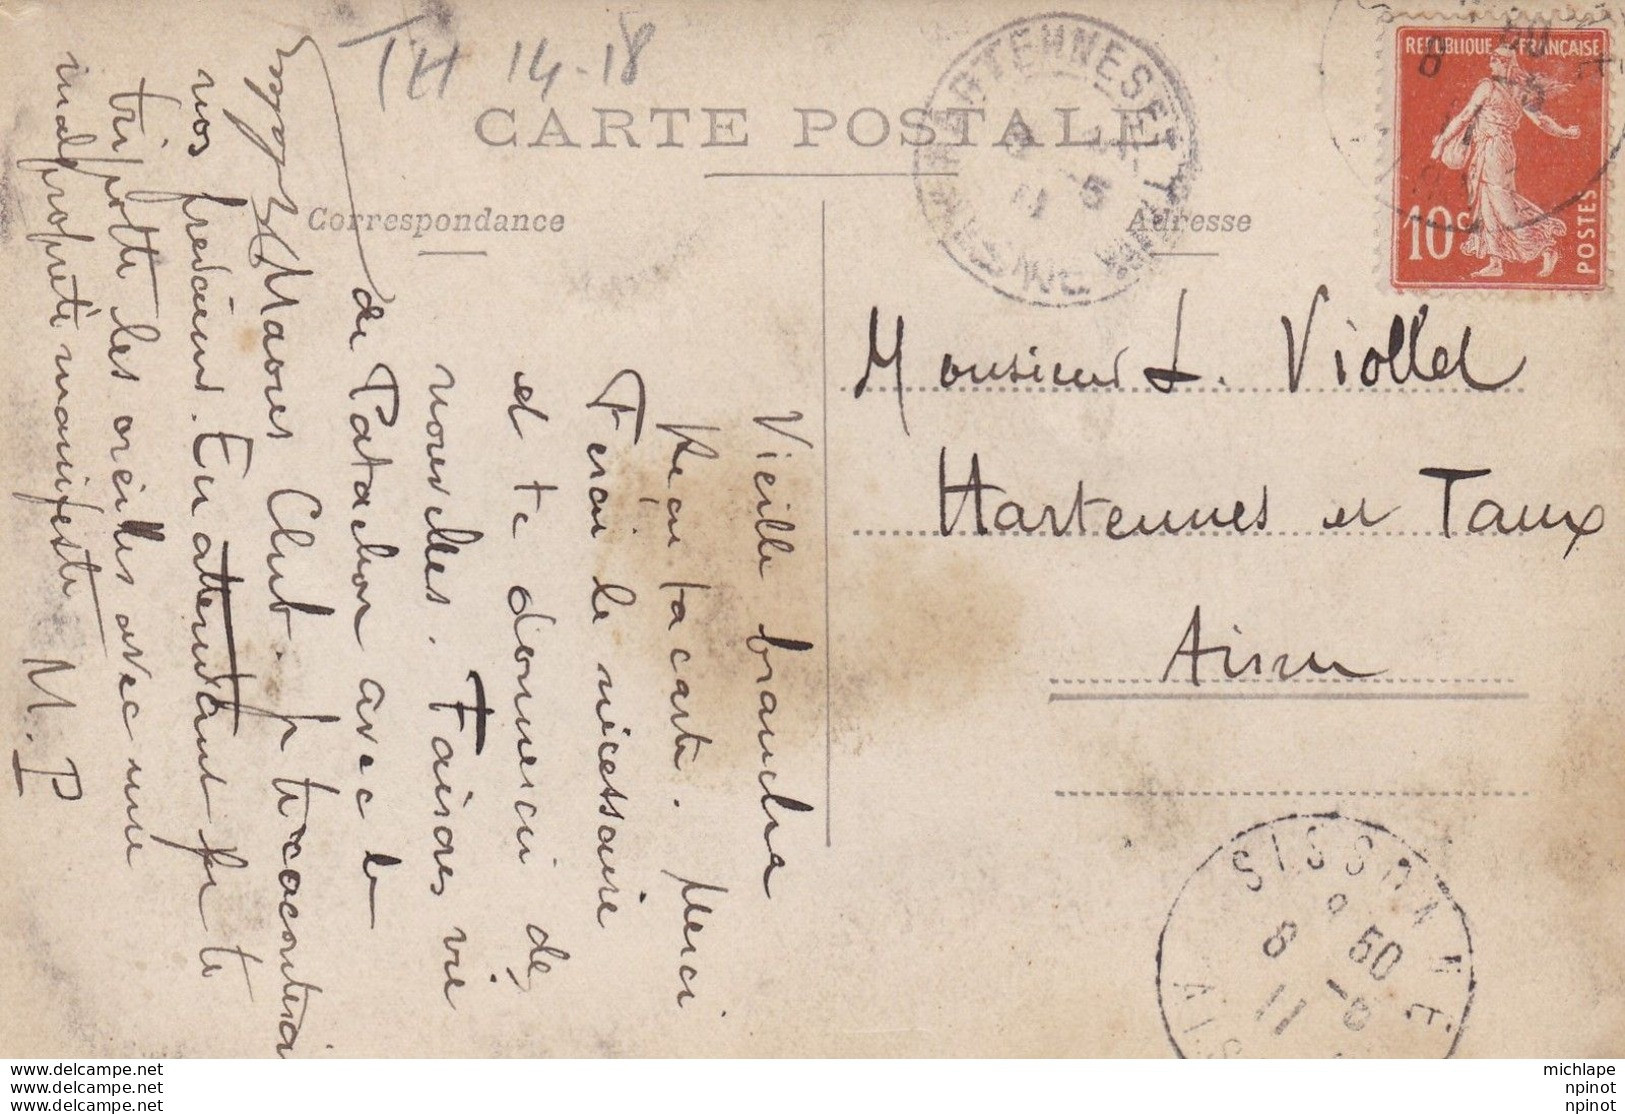 TH 14-18
CARTE POSTALE
Correspondance
Adresse
REPUBLIQUE FRANÇAISE
10c
POSTES
8 50
HARTENNES ET TAUX
AISNE
Monsieur L. Viollet
Hartennes et Taux
Aisne
SISSONNE
8 50
11 -5
AIS
Vieille branche
Reçu ta carte. Merci
Ferai le nécessaire
et te donnerai de
nouvelles. Faisons vie
de Patachon avec le
Maous Club. Je te raconterai
nos fredaines. En attendant je te
tripotte les oreilles avec une
malpropreté manifeste M. P
michlape
npinot
npinot